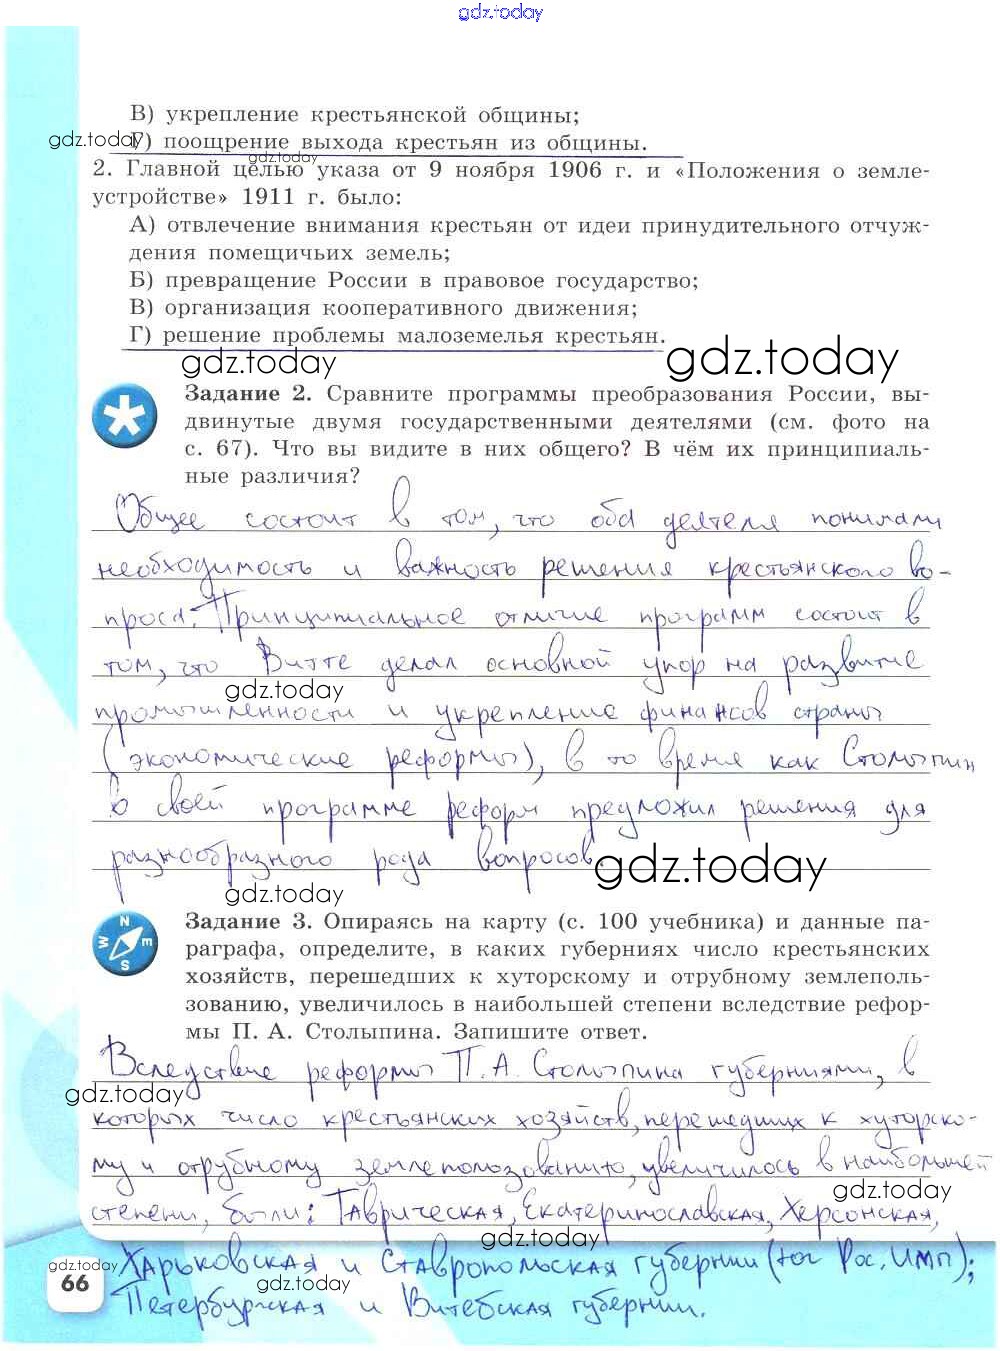 gdz.today
В) укрепление крестьянской общины;
gdz.today
Г) поощрение выхода крестьян из общины.
gdz.today
2. Главной целью указа от 9 ноября 1906 г. и «Положения о земле-
устройстве» 1911 г. было:
А) отвлечение внимания крестьян от идеи принудительного отчуж-
дения помещичьих земель;
Б) превращение России в правовое государство;
В) организация кооперативного движения;
Г) решение проблемы малоземелья крестьян.
gdz.today gdz.today
Задание 2. Сравните программы преобразования России, вы-
двинутые двумя государственными деятелями (см. фото на
с. 67). Что вы видите в них общего? В чём их принципиаль-
ные различия?
Общее состоит в том, что оба деятеля понимали
необходимость и важность решения крестьянского во-
проса. Принципиальное отличие программ состоит в
том, что Витте делал основной упор на развитие
gdz.today
промышленности и укрепление финансов страны
(экономические реформы), в то время как Столыпин
в своей программе реформ предложил решения для
разнообразного рода вопросов.
gdz.today
gdz.today
Задание 3. Опираясь на карту (с. 100 учебника) и данные па-
раграфа, определите, в каких губерниях число крестьянских
хозяйств, перешедших к хуторскому и отрубному землеполь-
зованию, увеличилось в наибольшей степени вследствие рефор-
мы П. А. Столыпина. Запишите ответ.
N
W E
S
Вследствие реформы П. А. Столыпина губерниями, в
gdz.today
которых число крестьянских хозяйств, перешедших к хуторско-
му и отрубному землепользованию, увеличилось в наибольшей
gdz.today
степени, были: Таврическая, Екатеринославская, Херсонская,
gdz.today
Харьковская и Ставропольская губернии (юг Рос. Имп);
gdz.today
66
gdz.today
Петербургская и Витебская губернии.